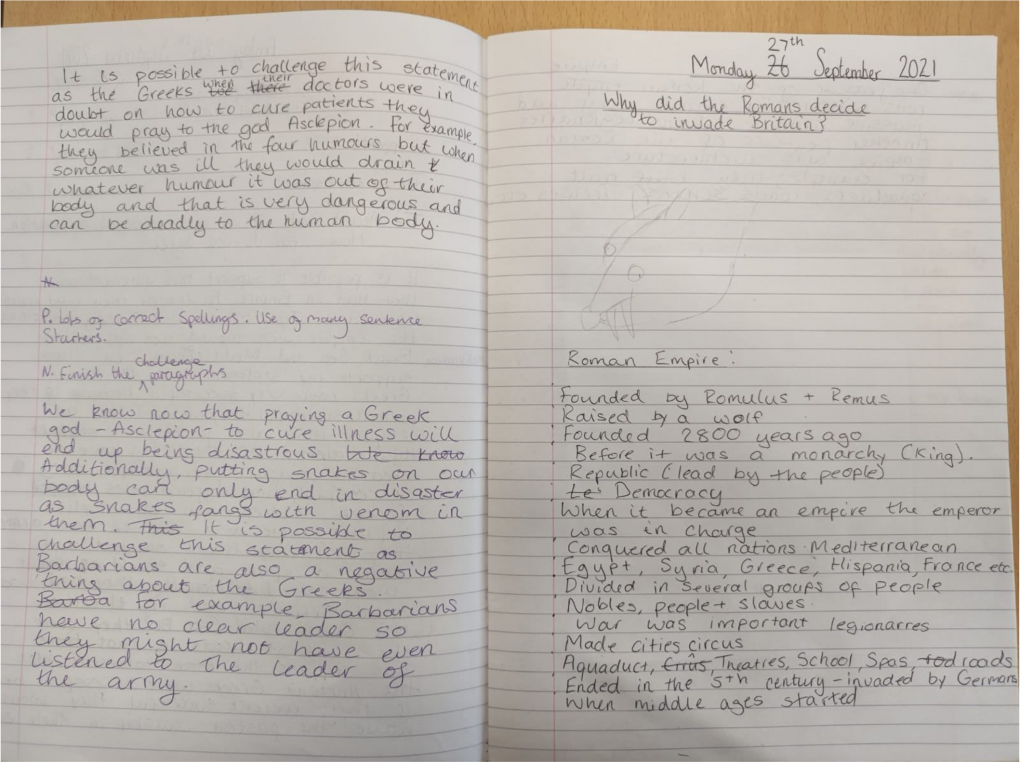 It is possible to challenge this statement
as the Greeks when their doctors were in
doubt on how to cure patients they
would pray to the god Asclepion. For example,
they believed in the four humours but when
someone was ill they would drain
whatever humour it was out of their
body and that is very dangerous and
can be deadly to the human body.
N.
P. Lots of correct spellings. Use of many sentence
starters.
N. Finish the challenge paragraphs
We know now that praying a Greek
god -Asclepion- to cure illness will
end up being disastrous. We know
Additionally, putting snakes on our
body can only end in disaster
as snakes fangs with venom in
them. This It is possible to
challenge this statement as
Barbarians are also a negative
thing about the Greeks.
Barba for example, Barbarians
have no clear leader so
they might not have even
listened to the leader of
the army.
27th
Monday 26 September 2021
Why did the Romans decide
to invade Britain?
Roman Empire:
Founded by Romulus + Remus
Raised by a wolf
Founded 2800 years ago
Before it was a monarchy (King).
Republic (lead by the people)
te Democracy
When it became an empire the emperor
was in charge
Conquered all nations Mediterranean
Egypt, Syria, Greece, Hispania, France etc.
Divided in several groups of people
Nobles, people + slaves.
War was important legionarres
Made cities circus
Aquaduct, Theatres, School, Spas, roads
Ended in the 5th century - invaded by Germans
When middle ages started